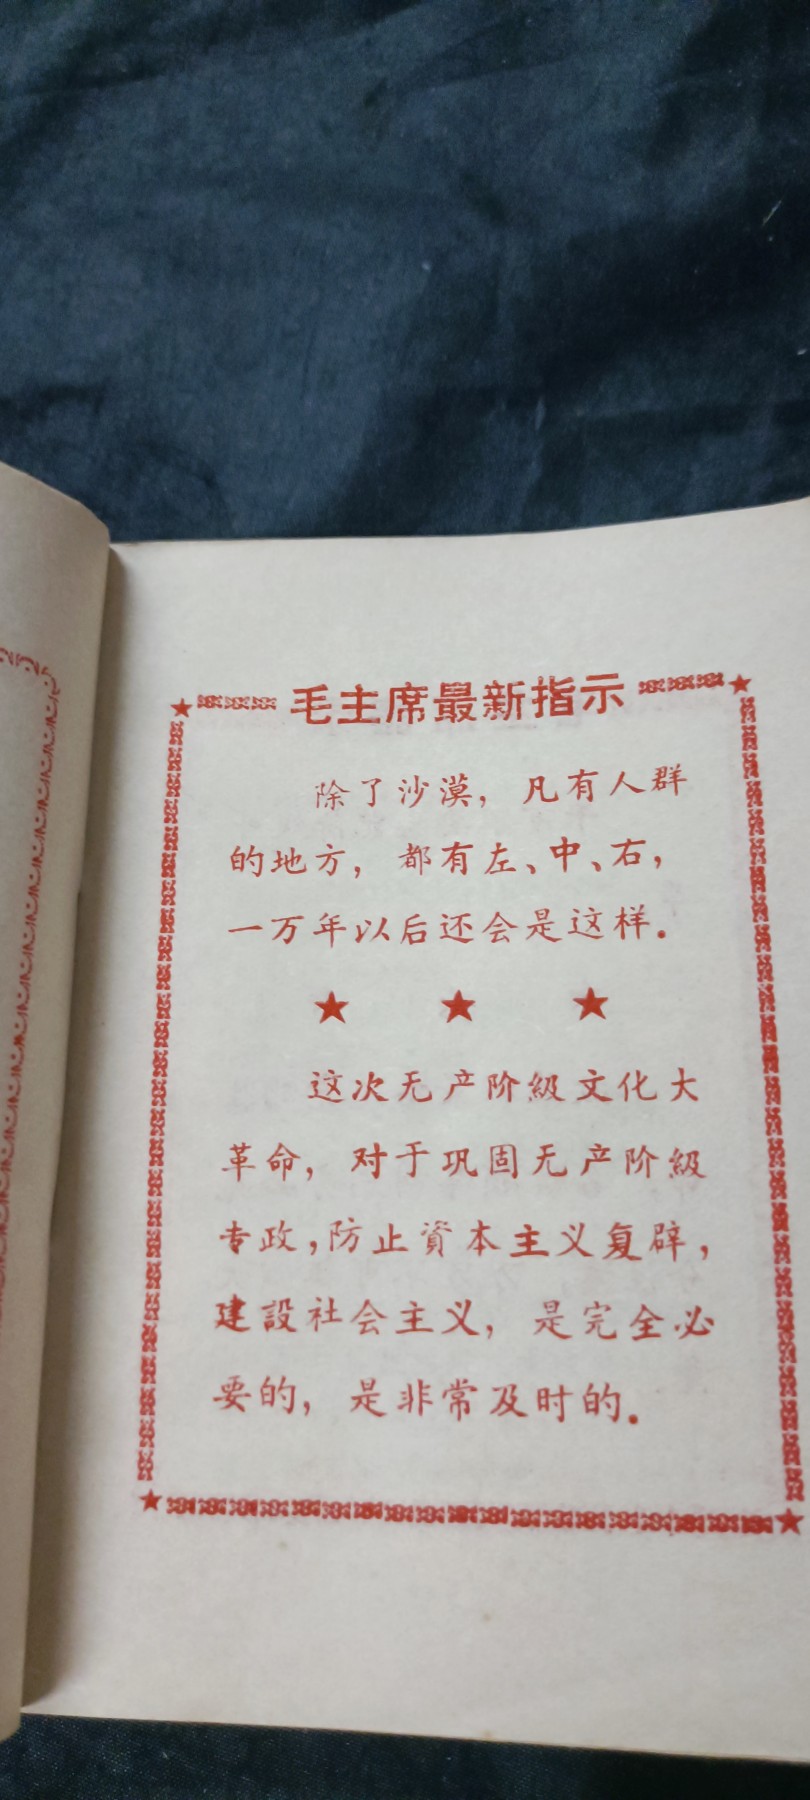 毛主席最新指示
除了沙漠，凡有人群
的地方，都有左、中、右，
一万年以后还会是这样．
这次无产阶級文化大
革命，对于巩固无产阶級
专政，防止資本主义复辟，
建設社会主义，是完全必
要的，是非常及时的．